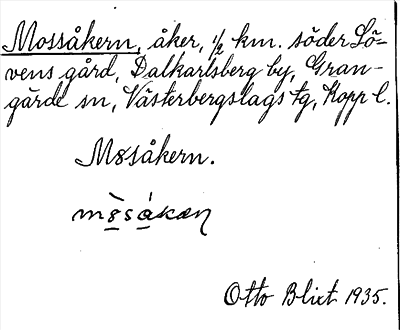 Mossåkern, åker, 1/2 km. söder Lö-
vens gård, Dalkarlsberg by, Gran-
gärde sn, Västerbergslags tg, Kopp l.
M8såkern.
Otto Blixt 1935.